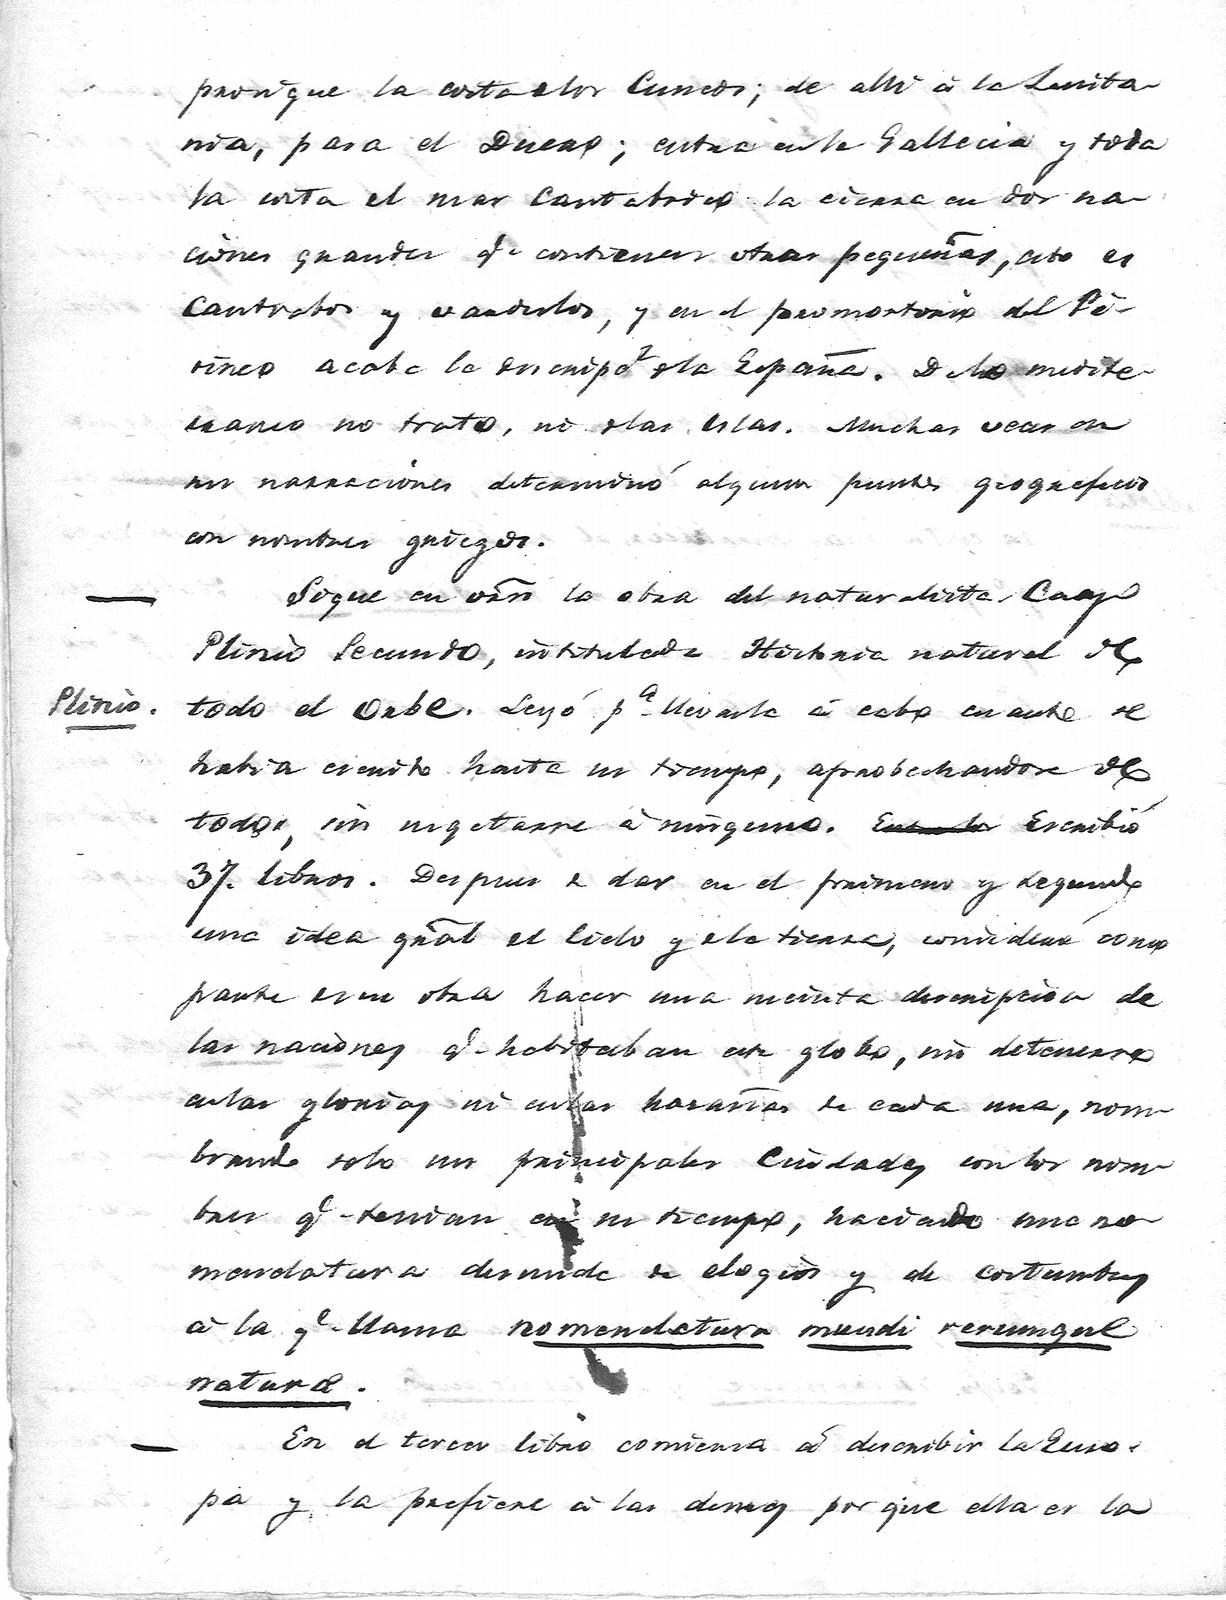 prosigue la costa de los Cuneos; de alli á la Lusita-
nia, pasa el Duero; entra en la Gallecia y toda
la costa del mar Cantabrico la cierra en dos na-
ciones grandes qe contienen otras pequeñas, esto es
Cantabos y vardulos, y en el promontorio del Pi-
rineo acaba la descripcn de la España. De lo medite-
rraneo no trató, ni de las Islas. Muchas veces en
sus narraciones determinó algunos puntos geograficos
con nombres griegos.
— Sigue en orn la obra del naturalista Cayo
Plinio Secundo, intitulada Historia natural de
Plinio. todo el Orbe. Leyó pa llevarla á cabo cuanto se
habia escrito hasta su tiempo, aprobechandose de
todos, sin sugetarse á ninguno. Escribió
37. libros. Despues de dar en el primero y segundo
una idea gñal del cielo y de la tierra, consideró como
parte de su obra hacer una sucinta descripcion de
las naciones qe habitaban este globo, sin detenerse
en las glorias ni en las hazañas de cada una, nom-
brando solo sus principales Ciudades con los nom-
bres qe tenian en su tiempo, haciendo una no-
menclatura desnuda de elogios y de costumbres
á la qe llama nomenclatura mundi rerumque
naturæ.
— En el tercer libro comienza á describir la Euro-
pa y la prefiere á las demas por que ella es la